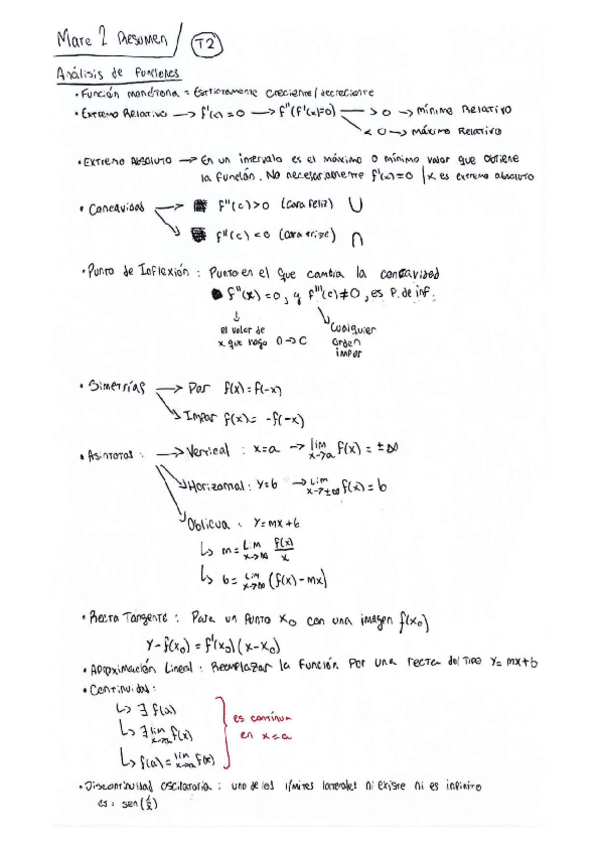 Mate 2 Resumen / T2
Análisis de funciones
• Función monótona = Estrictamente creciente/decreciente
• Extremo Relativo → f'(x) = 0 → f''(f'(x)=0) → > 0 → mínimo Relativo
< 0 → máximo Relativo
• Extremo Absoluto → En un intervalo es el máximo o mínimo valor que obtiene
la función. No necesariamente f'(x)=0 | x es extremo absoluto
• Concavidad → f''(c)>0 (Cara feliz) ∪
f''(c)<0 (Cara triste) ∩
• Punto de Inflexión : Punto en el que cambia la concavidad
f''(x)=0, y f'''(c)≠0, es P. de inf.
↓ el valor de ↘ Cualquier
x que haga 0 → C orden
impar
• Simetrías → Par f(x)=f(-x)
↘ Impar f(x)= -f(-x)
• Asíntotas : → Vertical : x=a → lim x→a f(x) = ±∞
↘ Horizontal : y=b → Lim x→±∞ f(x)=b
↘ Oblicua : y=mx+b
↳ m= Lim x→∞ f(x)/x
↳ b= Lim x→∞ (f(x)-mx)
• Recta Tangente : Para un punto x₀ con una imagen f(x₀)
y-f(x₀) = f'(x₀)(x-x₀)
• Aproximación Lineal : Reemplazar la función por una recta del tipo y=mx+b
• Continuidad :
↳ ∃ f(a)
↳ ∃ lim x→a f(x)
↳ f(a) = lim x→a f(x)
es continua
en x=a
• Discontinuidad oscilatoria : uno de los límites laterales ni existe ni es infinito